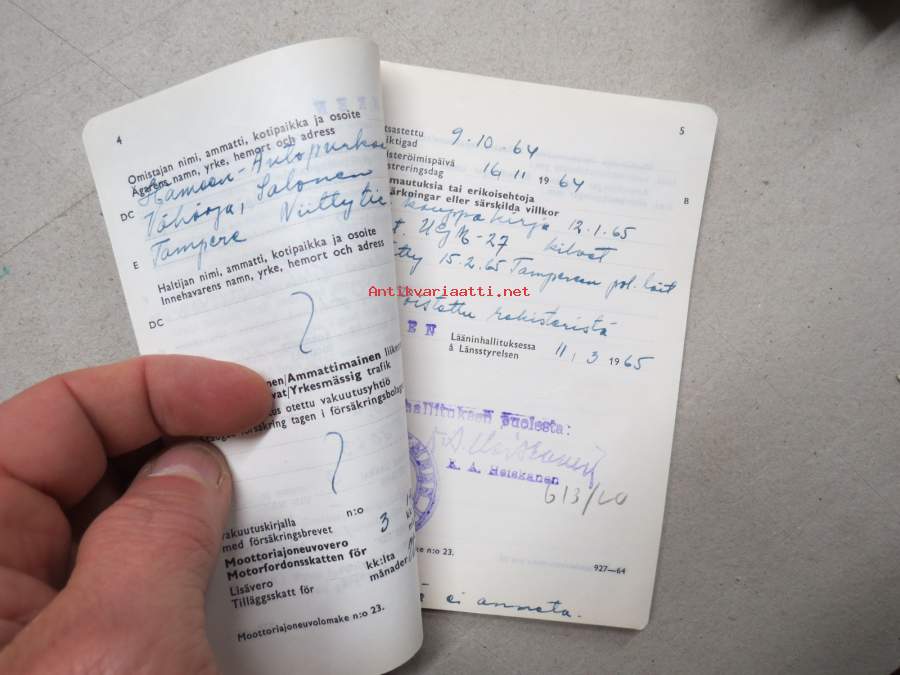 4
Omistajan nimi, ammatti, kotipaikka ja osoite
Ägarens namn, yrke, hemort och adress
Hämeen-Autopurkamo
DC
Salonen
Tampere Niittytie
E
Haltijan nimi, ammatti, kotipaikka ja osoite
Innehavarens namn, yrke, hemort och adress
DC
nen/Ammattimainen
vat/Yrkesmässig trafik
us otettu vakuutusyhtiö
försäkring tagen i försäkringsbolage
vakuutuskirjalla n:o
med försäkringsbrevet
3
Moottoriajoneuvovero
Motorfordonsskatten för
kk:lta
Lisävero
Tilläggsskatt för månader
Moottoriajoneuvolomake n:o 23.
5
tsastettu 9.10-64
iktigad
isteröimispäivä 16 11 1964
streringsdag
mautuksia tai erikoisehtoja
ärkningar eller särskilda villkor
B
kauppakirja 12.1.65
t. UGK-27 kilvat
tty 15.2.65 Tampereen pol. lait
oistettu rekisteristä
EN
Lääninhallituksessa
å Länsstyrelsen
11. 3 1965
hallituksen puolesta:
K. A. Heiskanen
613/60
ke n:o 23.
927—64
ei anneta.
Antikvariaatti.net